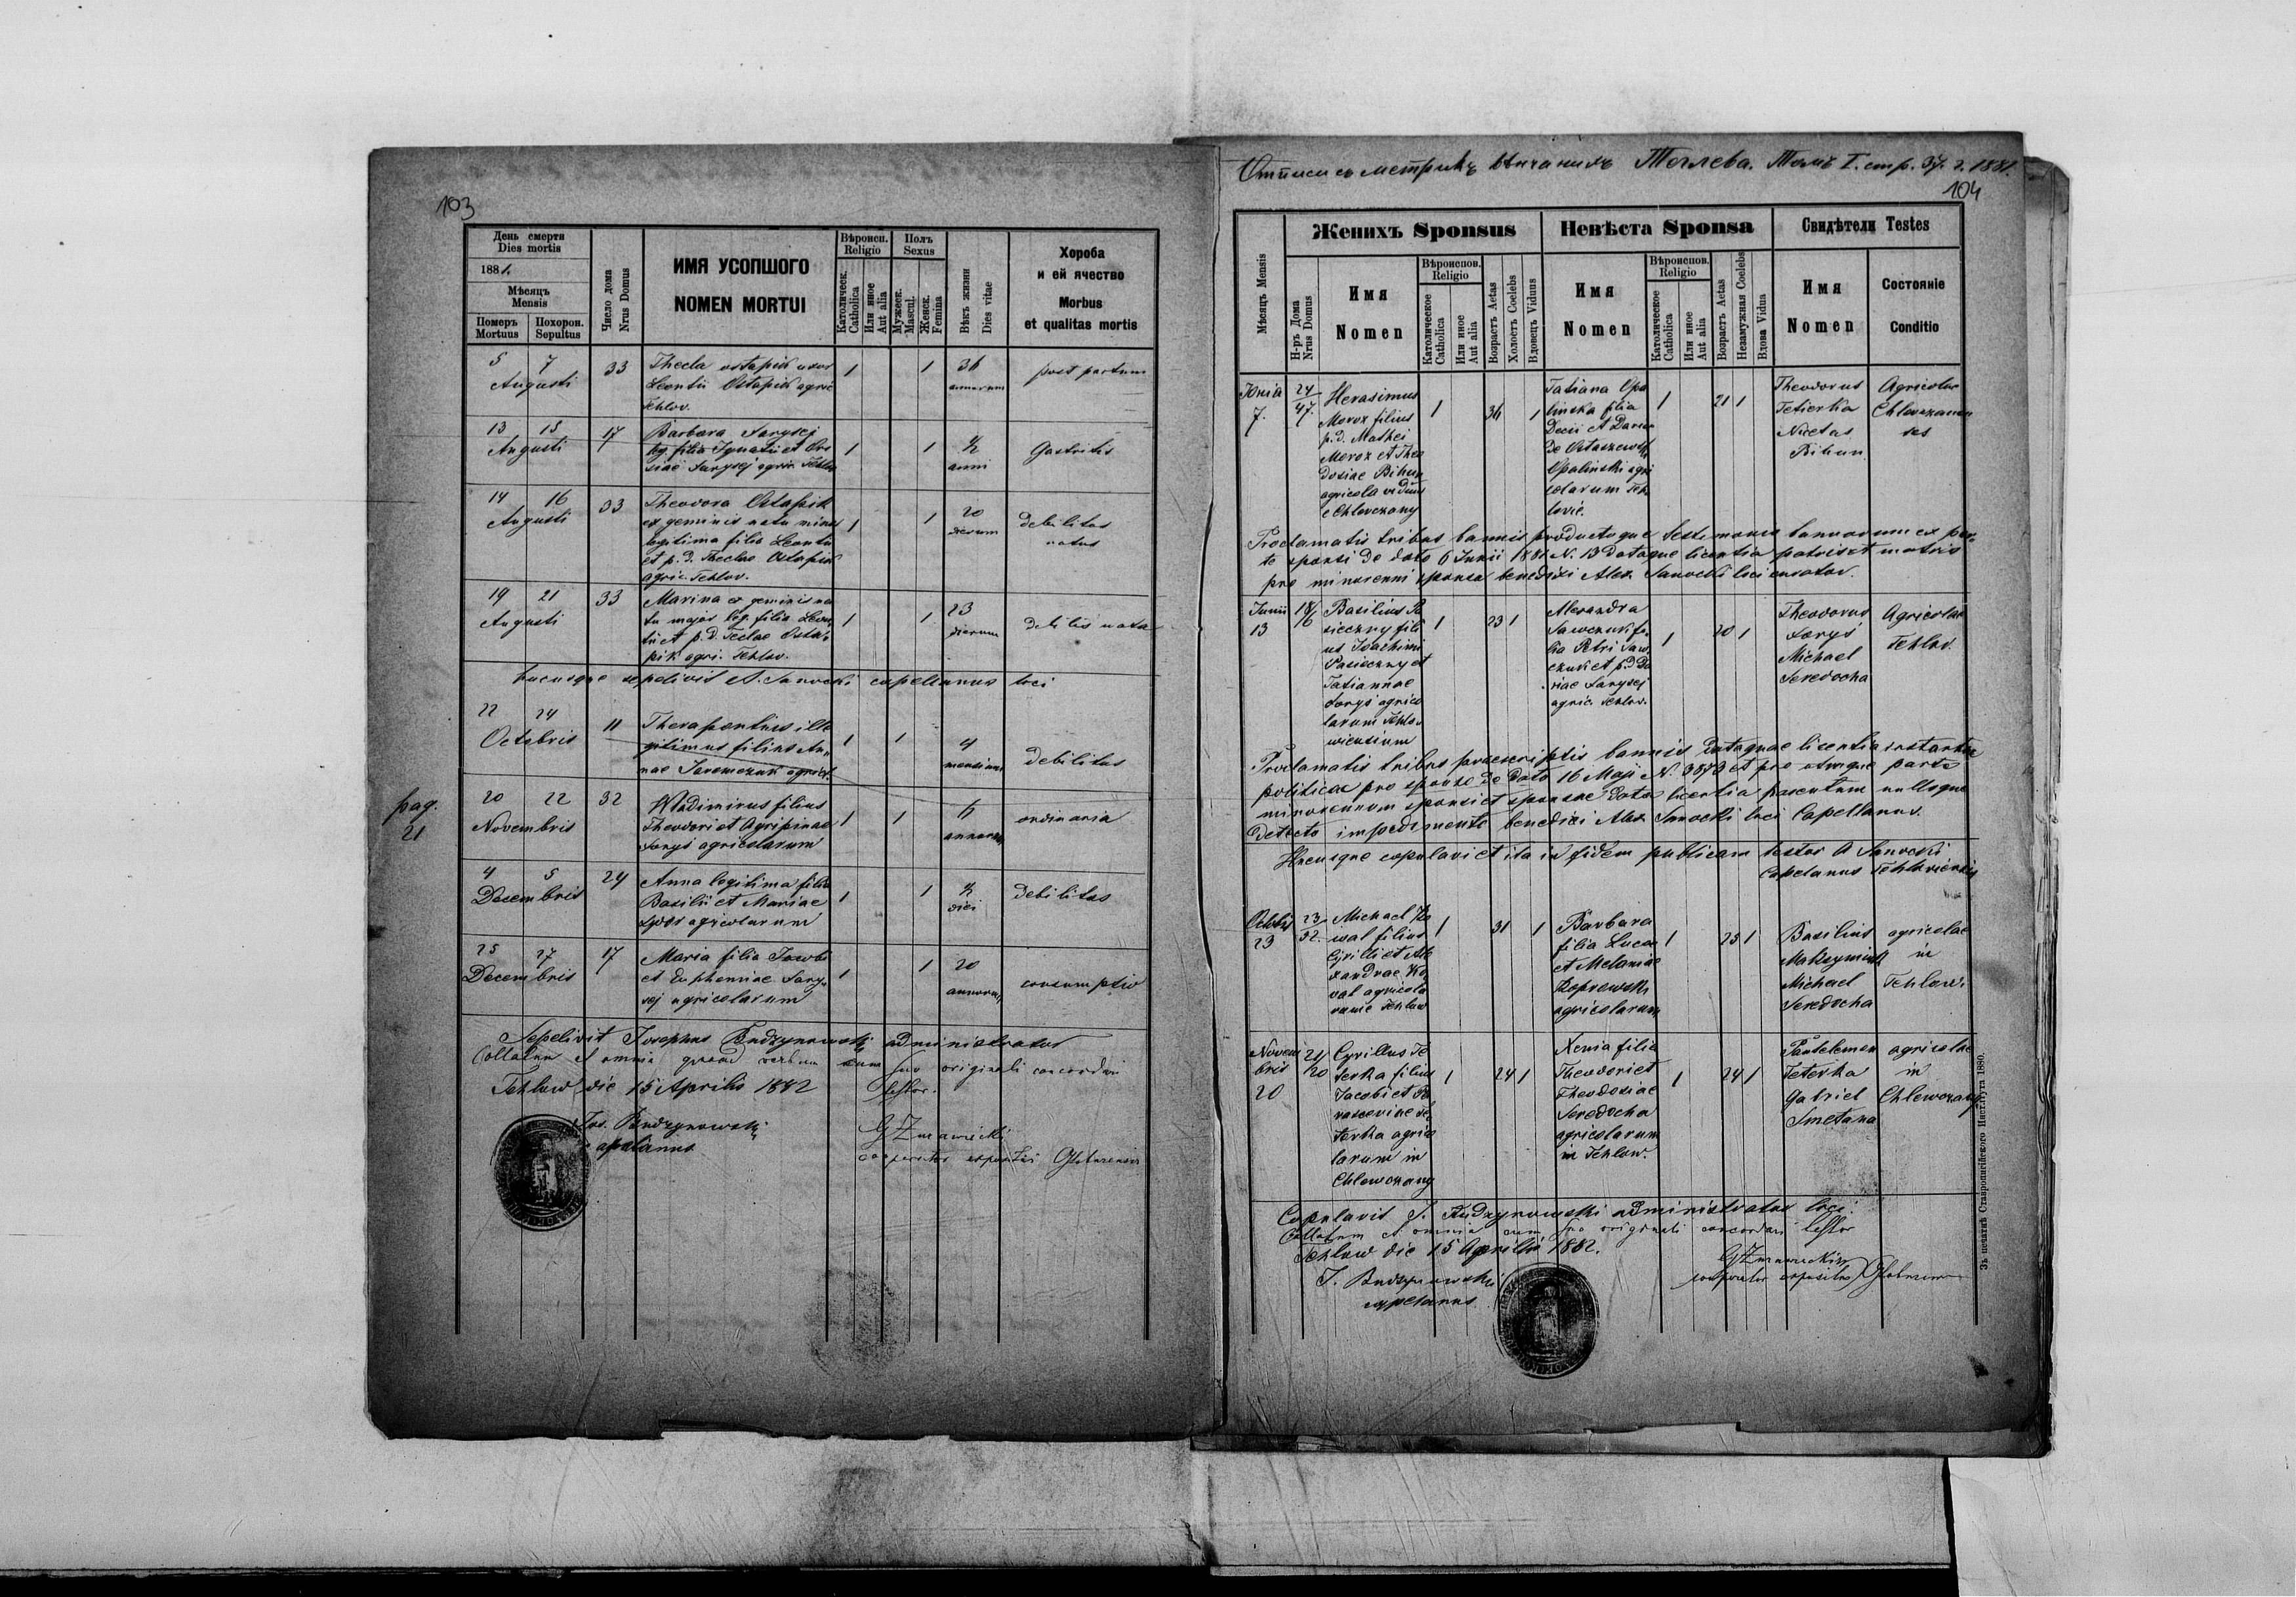 103
День смерти
Dies mortis
1881.
Мѣсяцъ
Mensis
Померъ
Mortuus
Похорон.
Sepultus
Число дома
Nrus Domus
ИМЯ УСОПШОГО
NOMEN MORTUI
Вѣроисп.
Religio
Католическ.
Catholica
Или иное
Aut alia
Полъ
Sexus
Мужеск.
Mascul.
Женск.
Femina
Вѣкъ жизни
Dies vitae
Хороба
и ей ячество
Morbus
et qualitas mortis
5 7
Augusti
33
Thecla Ostapik uxor
Leontii Ostapik agric
Tehlov.
1 1
annorum
post partum
13 15
Augusti
17
Barbara Sarysej
leg. filia Ignatii et
Sarysej agric. Tehlov
1 1
½
anni
Gastritis
14 16
Augusti
33
Theodora Ostapik
ex geminis natu minor
legitima filia Leontii
et p. d. Theclae Ostapik
agric. Tehlov.
1 1
20
dierum
debilitas
natus
19 21
Augusti
33
Marina ex geminis na
tu major leg. filia Leon
tii et p. d. Teclae Osta
pik agri. Tehlov.
1 1
23
dierum
debilis nata
hucusque sepelivit A. Sanocki capellanus loci
22 24
Octobris
11
Therapontius ille
gitimus filius An
nae Jaremczuk agric.
1 1
4
mensium
debilitas
pag.
21
20 22
Novembris
32
Wladimirus filius
Theodori et Agripinae
Sorys agricolarum
1 1
annorum
ordinaria
4 5
Decembris
24
Anna legitima filia
Basilii et Mariae
agricolarum
1 1
½
diei
debilitas
25 27
Decembris
17
Maria filia Jacobi
et Euphemiae Sary
sej agricolarum
1 1
20
annorum
consumptio
Sepelivit Josephus Budzynowski administrator
Collatum et omnia quoad verbum cum suo originali concordari
Tehlow die 15 Aprilis 1882 testor.
Jos. Budzynowski
capelanus
cooperator expositus
Отписи съ метрикъ вѣнчанихъ Тяглева. Томъ I. стр. 37. г. 1881.
104
Мѣсяцъ Mensis
Женихъ Sponsus
Н-ръ Дома
Nrus Domus
Имя
Nomen
Вѣроиспов.
Religio
Католическое
Catholica
Или иное
Aut alia
Возрастъ Aetas
Холостъ Coelebs
Вдовецъ Viduus
Невѣста Sponsa
Имя
Nomen
Вѣроиспов.
Religio
Католическое
Catholica
Или иное
Aut alia
Возрастъ Aetas
Незамужная Coelebs
Вдова Vidua
Свидѣтели Testes
Имя
Nomen
Состояніе
Conditio
Юнія
7.
24
47.
Herasimus
Moroz filius
p. d. Mathei
Moroz et Theo
dosiae Bihun
agricola viduus
e Chlewczany
1 1
Tatiana Opa
linska filia
Decii et Dariae
de Ostaszewski
Opalinski agri
colarum Teh
lovie.
1 21 1
Theodorus
Tetierka
Nicetas
Bihun
Agricolae
Chlewczanen
ses
Proclamatis tribus bannis productoque testimonio bannorum ex par
te sponsi de dato 6 Junii 1881 N. 13 dataque licentia patris et matris
pro minorenni sponsa benedixi Alex. Sanocki loci curator.
Junii
13
Basilius Pa
sieczny fili
us Joachimi
Pasieczny et
Tatiannae
Sorys agrico
larum Tehlo
wiensium
1 23 1
Alexandra
Sawczuk fi
lia Petri Saw
czuk et p. d. Da
riae Sarysej
agric. Tehlov.
1 20 1
Theodorus
Sorys
Michael
Seredocha
Agricolae
Tehlov.
Proclamatis tribus praescriptis bannis dataque licentia instantiae
politicae pro sponso de dato 16 Maji N. 3878 et pro utraque parte
minorennum sponsi et sponsae data licentia parentum nulloque
detecto impedimento benedixi Alex. Sanocki loci Capellanus.
Hucusque copulavi et ita in fidem publicam testor A Sanocki
Capelanus Tehloviensis
Octobris
23
23
32.
Michael Ko
wal filius
Cyrilli et Ale
xandrae Ko
val agricola
rum Tehlow
1 31 1
Barbara
filia Lucae
et Melaniae
Koprowski
agricolarum
1 25 1
Basilius
Maksymiuk
Michael
Seredocha
agricolae
in
Tehlow.
Novem
bris
20
24
20
Cyrillus Te
terka filius
Jacobi et Pa
rasceviae Te
terka agrico
larum in
Chlewczany
1 24 1
Xenia filia
Theodori et
Theodosiae
Seredocha
agricolarum
in Tehlow.
1 24 1
Panteleimon
Teterka
Gabriel
Smetana
agricolae
in
Chlewczany
Copulavit J. Budzynowski administrator loci.
Collatum et omnia cum suo originali concordari testor
Tehlow die 15 Aprilis 1882.
J. Budzynowski
capelanus
cooperator expositus
Зъ печатнѣ Ставропигійского Инст-тута 1880.